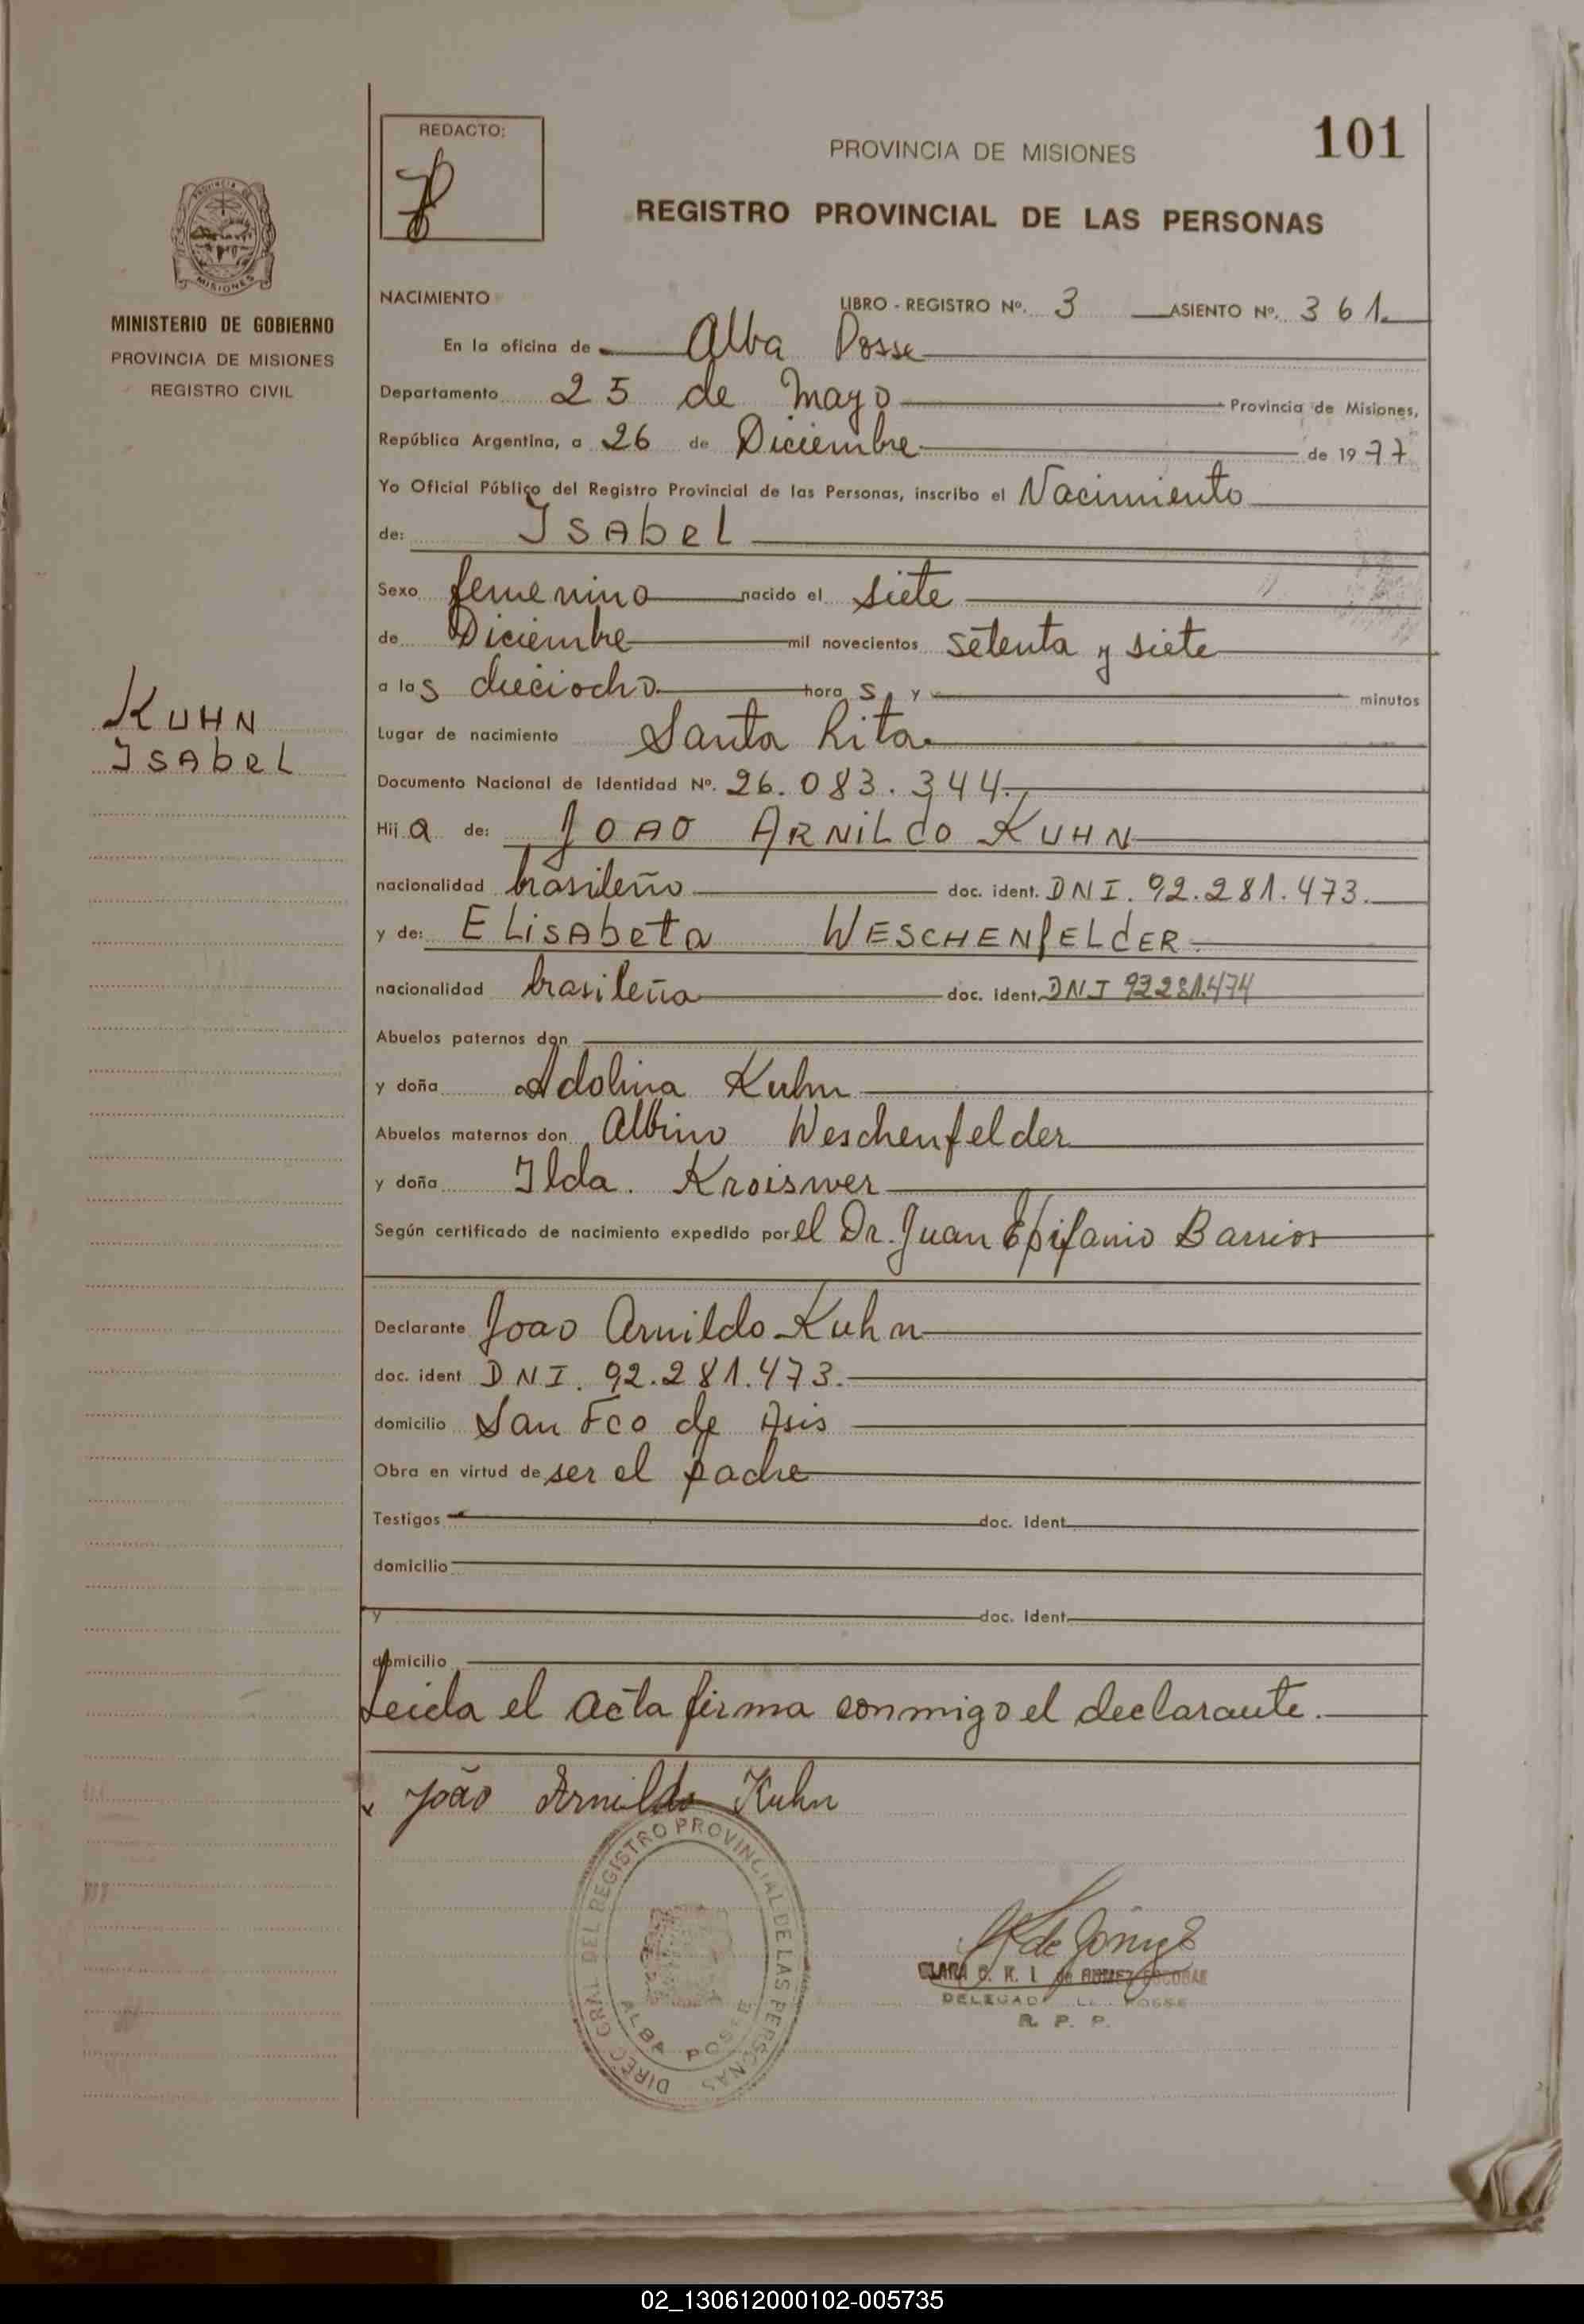 101
REDACTO:
PROVINCIA DE MISIONES
REGISTRO PROVINCIAL DE LAS PERSONAS
PROVINCIA DE
MISIONES
MINISTERIO DE GOBIERNO
PROVINCIA DE MISIONES
REGISTRO CIVIL
NACIMIENTO LIBRO - REGISTRO Nº. 3 ASIENTO Nº. 361.
En la oficina de Alba Posse
Departamento 25 de Mayo Provincia de Misiones,
República Argentina, a 26 de Diciembre de 1977
Yo Oficial Público del Registro Provincial de las Personas, inscribo el Nacimiento
de: ISAbEL
Sexo femenino nacido el siete
de Diciembre mil novecientos setenta y siete
a las dieciocho hora s y minutos
KUHN
ISAbEL
Lugar de nacimiento Santa Rita
Documento Nacional de Identidad Nº. 26.083.344.
Hij a de: JOAO ARNILdO KUHN
nacionalidad brasileño doc. ident. DNI. 92.281.473.
y de: ELisAbeta WESCHENfELdER
nacionalidad brasileña doc. ident. DNI 92281.474
Abuelos paternos don
y doña Adolina Kuhn
Abuelos maternos don Albino Weschenfelder
y doña Ilda. Kroisner
Según certificado de nacimiento expedido por el Dr. Juan Epifanio Barrios
Declarante Joao Arnildo Kuhn
doc. ident DNI. 92.281.473.
domicilio San Fco de Asis
Obra en virtud de ser el padre
Testigos doc. ident
domicilio
y doc. ident
domicilio
Leida el acta firma conmigo el declarante.
x João Arnildo Kuhn
DIREC. GRAL DEL REGISTRO PROVINCIAL DE LAS PERSONAS
ALBA POSSE
de Gómez
CLARA de GOMEZ ESCOBAR
POSSE
R. P. P.
02_130612000102-005735